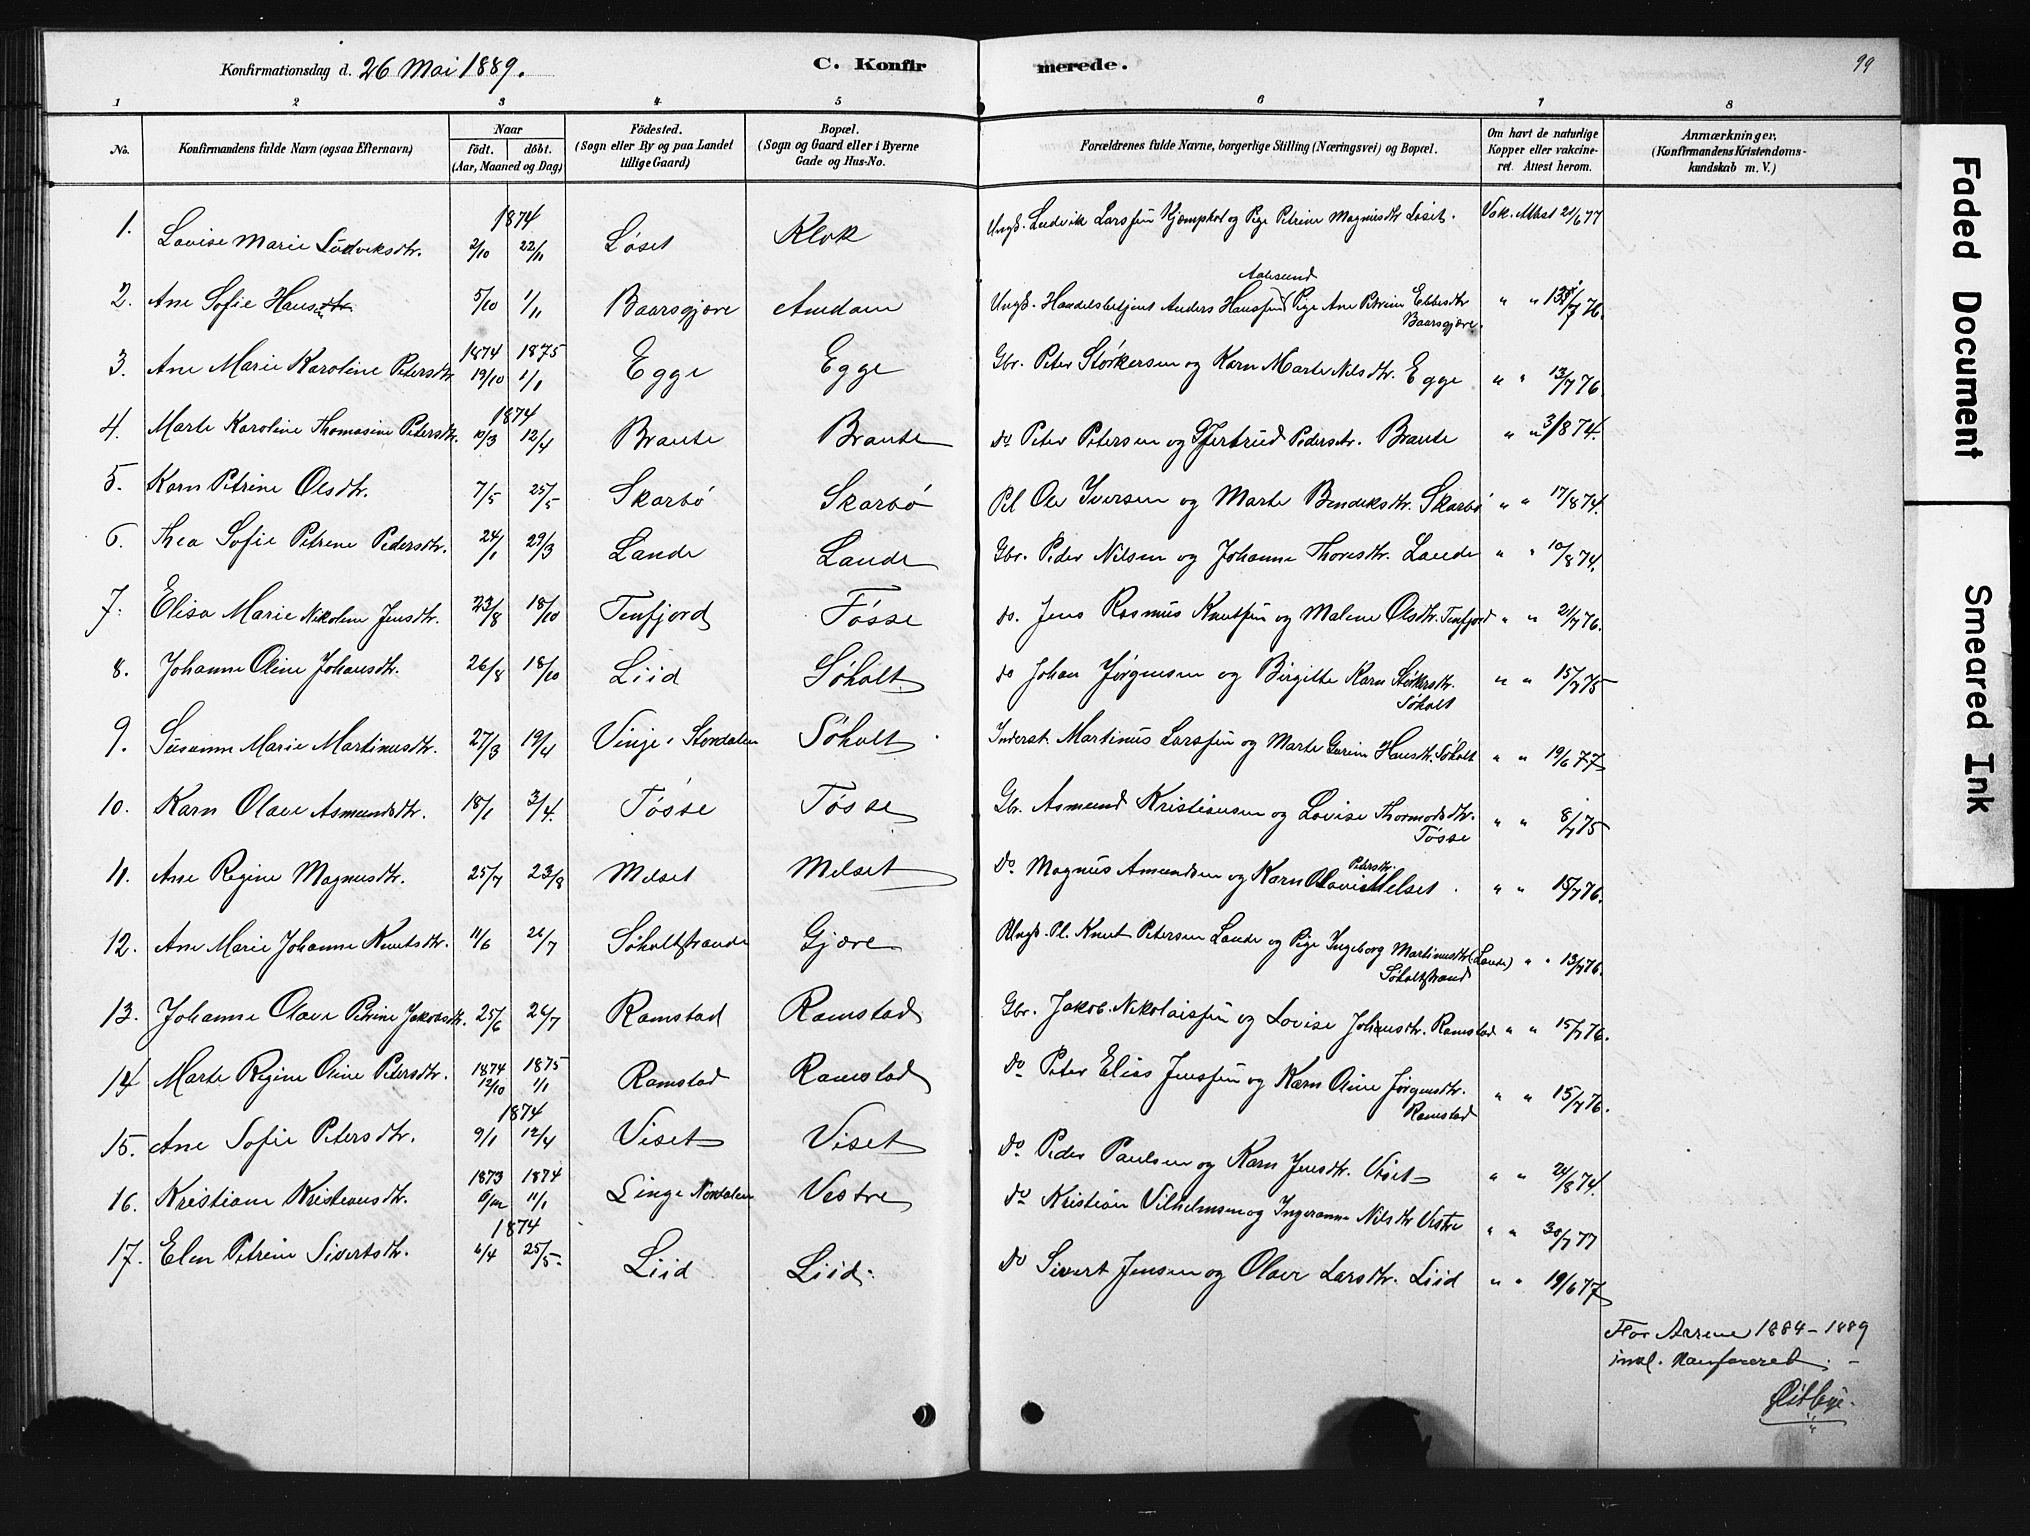 Konfirmationsdag d. 26 Mai 1889. C. Konfirmerede. 99
1 2 3 4 5 6 7 8
No. Konfirmandens fulde Navn (ogsaa Efternavn) Naar Födt. döbt. (Aar, Maaned og Dag) Födested. (Sogn eller By og paa Landet tillige Gaard) Bopæl. (Sogn og Gaard eller i Byerne Gade og Hus-No. Forældrenes fulde Navne, borgerlige Stilling (Næringsvei) og Bopæl. Om havt de naturlige Kopper eller vakcineret. Attest herom. Anmærkninger. (Konfirmandens Kristendomskundskab m. V.)
1874
1. Lovise Marie Ludviksdtr. 2/10 22/11 Løset Klok Ungk. Ludvik Larssen og Pige Petrine Magnusdtr Løset. Vak. Attest 21/6 77
Aalesund
2. Ane Sofie Hans 5/10 1/11 Baarsgjære Amdam Ungk. Handelsbetjent Anders Hanssen Pige Ane Petrine Ebbesdtr " " 13/7 76.
Baarsgjære.
1874 1875
3. Ane Marie Karoline Petersdtr 19/10 1/1 Egge Egge Gbr. Peter Störkersen og Karn Marte Nilsdtr. Egge " " 13/7 76
1874
4. Marte Karoline Thomasine Petersdtr. 10/3 12/4 Braute Braute do Peter Petersen og Gjertrud Pedersdtr. Braute " " 3/8 74.
5. Karn Petrine Olsdtr. 7/5 25/5 Skarbö Skarbö Pl Ole Iversen og Marte Bendiksdtr. Skarbö " " 17/8 74.
6. Thea Sofie Petrine Pedersdtr. 24/1 29/3 Lande Lande Gbr. Peder Nilsen og Johanne Thoresdtr. Lande " " 10/8 74.
7. Elisa Marie Nikoline Jensdtr. 23/8 18/10 Tenfjord Tösse do. Jens Rasmus Knutsen og Malene Olsdtr. Tenfjord " " 21/7 76.
8. Johanne Oline Johansdtr. 26/8 18/10 Liid Söholt do Johan Jörgensen og Birgitte Karn Störkersdtr. " " 15/7 75
Söholt
9. Susanne Marie Martinusdtr. 27/3 19/4 Vinje i Stordalen Söholt Inderst. Martinus Larssen og Marte Gurine Hansdtr. Söholt " " 19/6 77
10. Karn Olave Asmundsdtr. 18/1 3/4. Tösse Tösse Gbr. Asmund Kristiansen og Lovise Thormodsdtr. " " 8/7 75
Tösse
Petersdtr.
11. Ane Regine Magnusdtr. 25/7 23/8 Melset Melset Do. Magnus Amundsen og Karn Olave Melset. " " 15/7 76.
12. Ane Marie Johanne Knutsdtr. 11/6 26/7 Söholtstrande Gjære Ungk. Pl. Knut Petersen Lande og Pige Ingeborg Martinusdtr (Lande) " " 13/7 76.
Söholtstrand
13. Johanne Olave Petrine Jakobsdtr. 25/6 26/7 Ramstad Ramstad Gbr. Jakob Nikolaissen og Lovise Johansdtr. Ramstad " " 15/7 76.
1874 1875
14 Marte Regine Oline Petersdtr. 12/10 1/1 Ramstad Ramstad Do Peter Elias Jenssen og Karn Oline Jørgensdtr. " " 15/7 76.
Ramstad
1874
15. Ane Sofie Petersdtr. 9/1 12/4 Viset Viset Do Peder Paulsen og Karn Jensdtr. Viset " " 24/8 74.
1873 1874
16. Kristiane Kristiansdtr. 6/12 11/1 Linge Nordalen Vestre do Kristian Vilhelmsen og Ingeranna Nilsdtr Vestre " " 30/7 77
1874
17. Elen Petrine Sivertsdtr. 6/4 25/5 Liid Liid. do Sivert Jensen og Olave Larsdtr. Liid " " 19/6 77
For Aarene 1884-1889
inkl. konfereret.
Faded Document
Smeared Ink